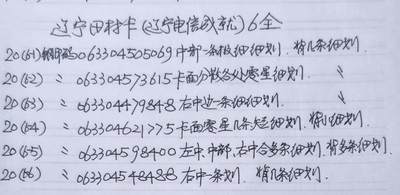 辽宁田村卡(辽宁电信成就)6全
20(6-1) 063304505069 中部一条极细细划.
20(6-2) 〃 063304573615 卡面分散各处零星细划.〃
20(6-3) 〃 063304479848 右中边一条细细划.〃
20(6-4) 〃 063304621775 卡面零星几条短细划.
20(6-5) 〃 063304598400 左中、中部、右中各多条细划.背多条细划
20(6-6) 〃 063304548488 右中一条划.背几细划.